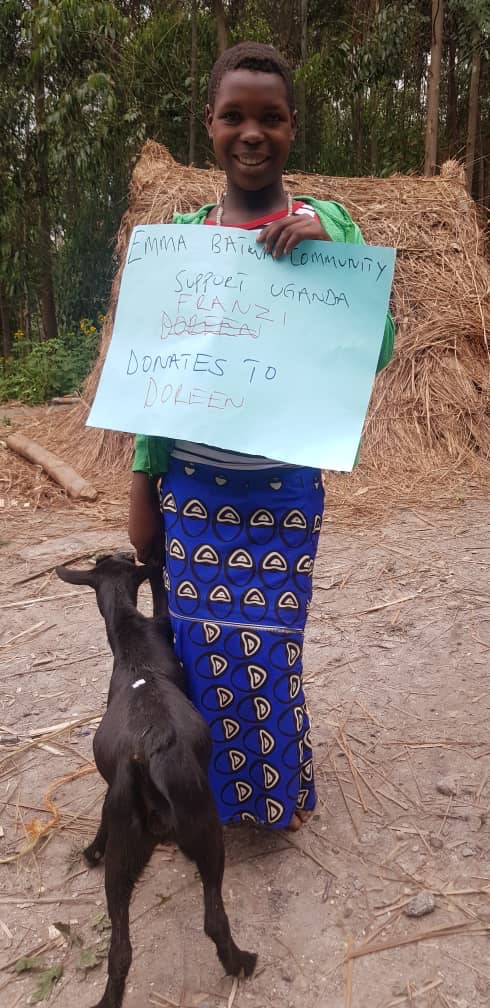 EMMA BATWA COMMUNITY
SUPPORT UGANDA
FRANZI
DOREEN
DONATES TO
DOREEN